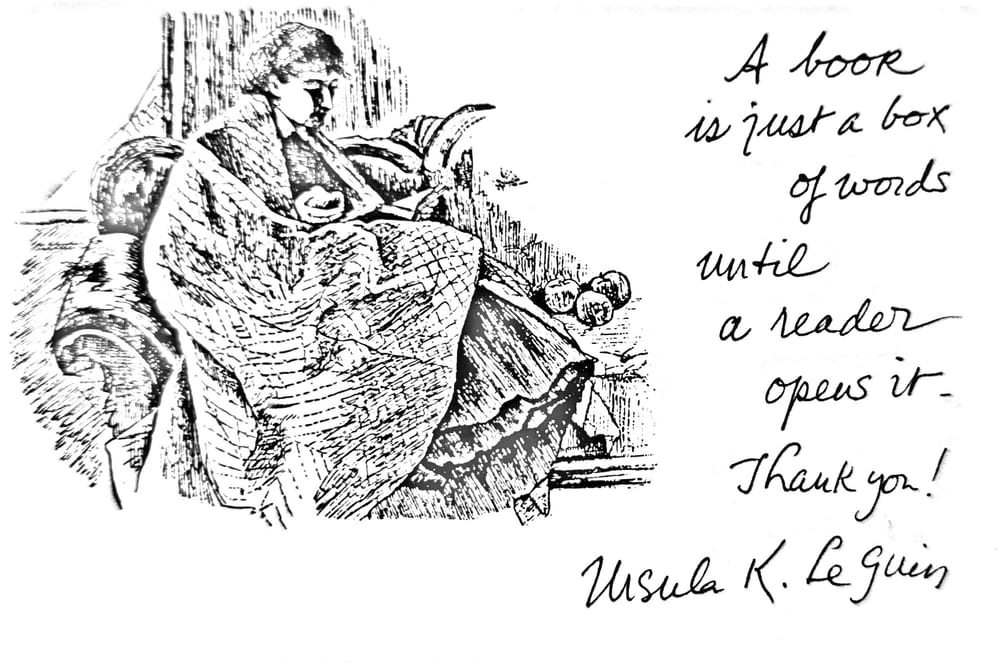 A book
is just a box
of words
until
a reader
opens it -
Thank you!
Ursula K. Le Guin